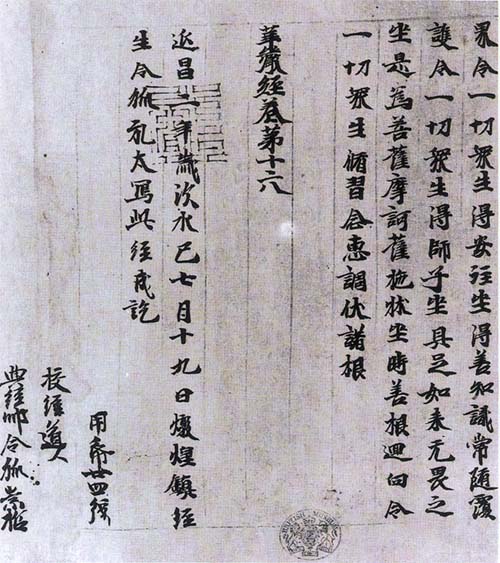 界令一切眾生得安住坐得善知識常隨覆
護令一切眾生得師子坐具足如來无畏之
坐是為菩薩摩訶薩施床坐時善根迴向令
一切眾生脩習念惠調伏諸根
華嚴經卷第十六
延昌二年歲次水巳七月十九日燉煌鎮經
生令狐礼太寫此經成訖
用紙廿四張
校經道人
典經帥令狐崇哲